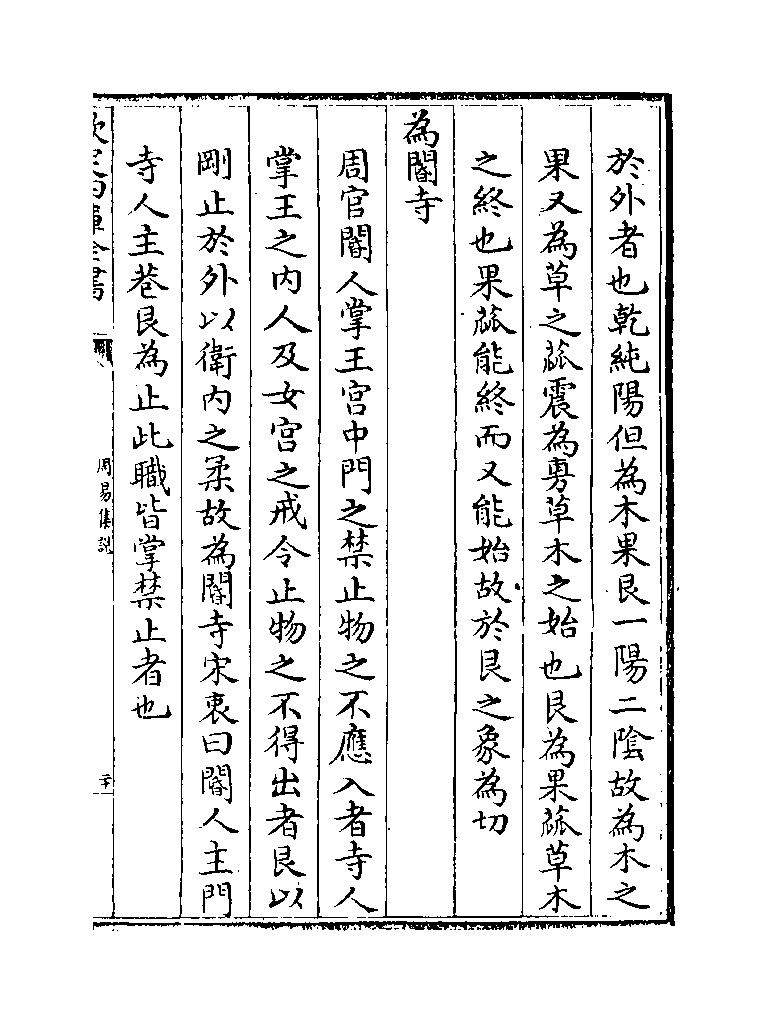 於外者也乾純陽但為木果艮一陽二陰故為木之
果又為草之蓏震為旉草木之始也艮為果蓏草木
之終也果蓏能終而又能始故於艮之象為切
為閽寺
周官閽人掌王宫中門之禁止物之不應入者寺人
掌王之内人及女宫之戒令止物之不得出者艮以
剛止於外以衛内之柔故為閽寺宋衷曰閽人主門
寺人主巷艮為止此職皆掌禁止者也
欽定四庫全書
周易集説
二十